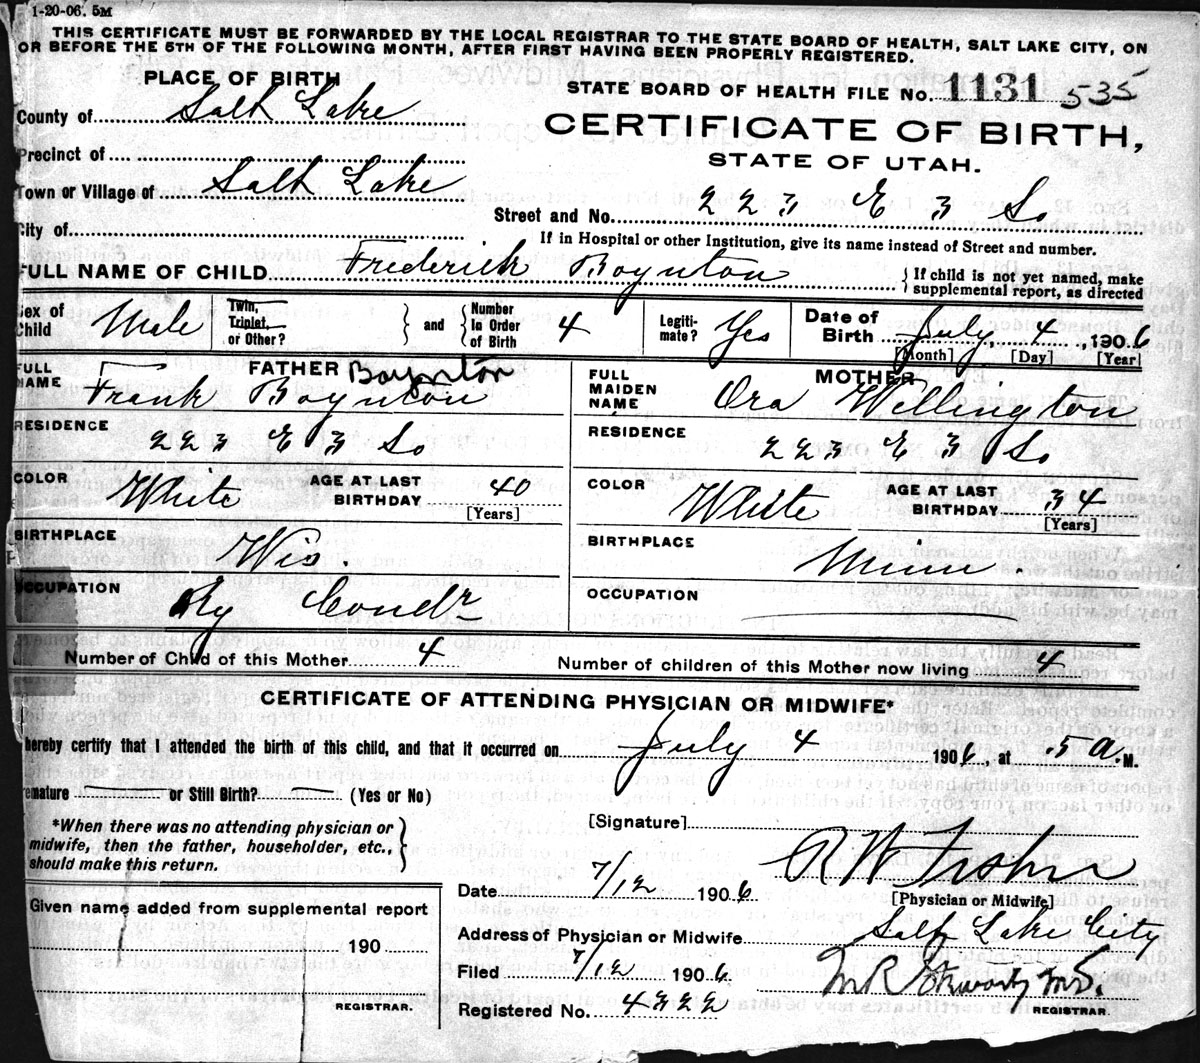 1-20-06. 5M
THIS CERTIFICATE MUST BE FORWARDED BY THE LOCAL REGISTRAR TO THE STATE BOARD OF HEALTH, SALT LAKE CITY, ON
OR BEFORE THE 5TH OF THE FOLLOWING MONTH, AFTER FIRST HAVING BEEN PROPERLY REGISTERED.
PLACE OF BIRTH
STATE BOARD OF HEALTH FILE No. 1131 535
County of Salt Lake
CERTIFICATE OF BIRTH,
STATE OF UTAH.
Precinct of
Town or Village of Salt Lake
Street and No. 223 E 3 So
City of
If in Hospital or other Institution, give its name instead of Street and number.
FULL NAME OF CHILD Frederick Boynton
{If child is not yet named, make
supplemental report, as directed
Sex of Child Male
Twin, Triplet, or Other? } and { Number In Order of Birth 4
Legiti-mate? Yes
Date of Birth July 4, 1906
[Month] [Day] [Year]
FATHER Boynton
FULL NAME Frank Boynton
MOTHER
FULL MAIDEN NAME Ora Wellington
RESIDENCE 223 E 3 So
RESIDENCE 223 E 3 So
COLOR White AGE AT LAST BIRTHDAY 40 [Years]
COLOR White AGE AT LAST BIRTHDAY 34 [Years]
BIRTHPLACE Wis.
BIRTHPLACE Minn.
OCCUPATION Ry Condr
OCCUPATION
Number of Child of this Mother 4
Number of children of this Mother now living 4
CERTIFICATE OF ATTENDING PHYSICIAN OR MIDWIFE*
hereby certify that I attended the birth of this child, and that it occurred on July 4 1906, at 5 A. M.
remature or Still Birth? (Yes or No)
*When there was no attending physician or
midwife, then the father, householder, etc.,
should make this return.
[Signature]
Date 7/12 1906
[Physician or Midwife]
Given name added from supplemental report
190
REGISTRAR.
Address of Physician or Midwife Salt Lake City
Filed 7/12 1906
Registered No. 4322
REGISTRAR.